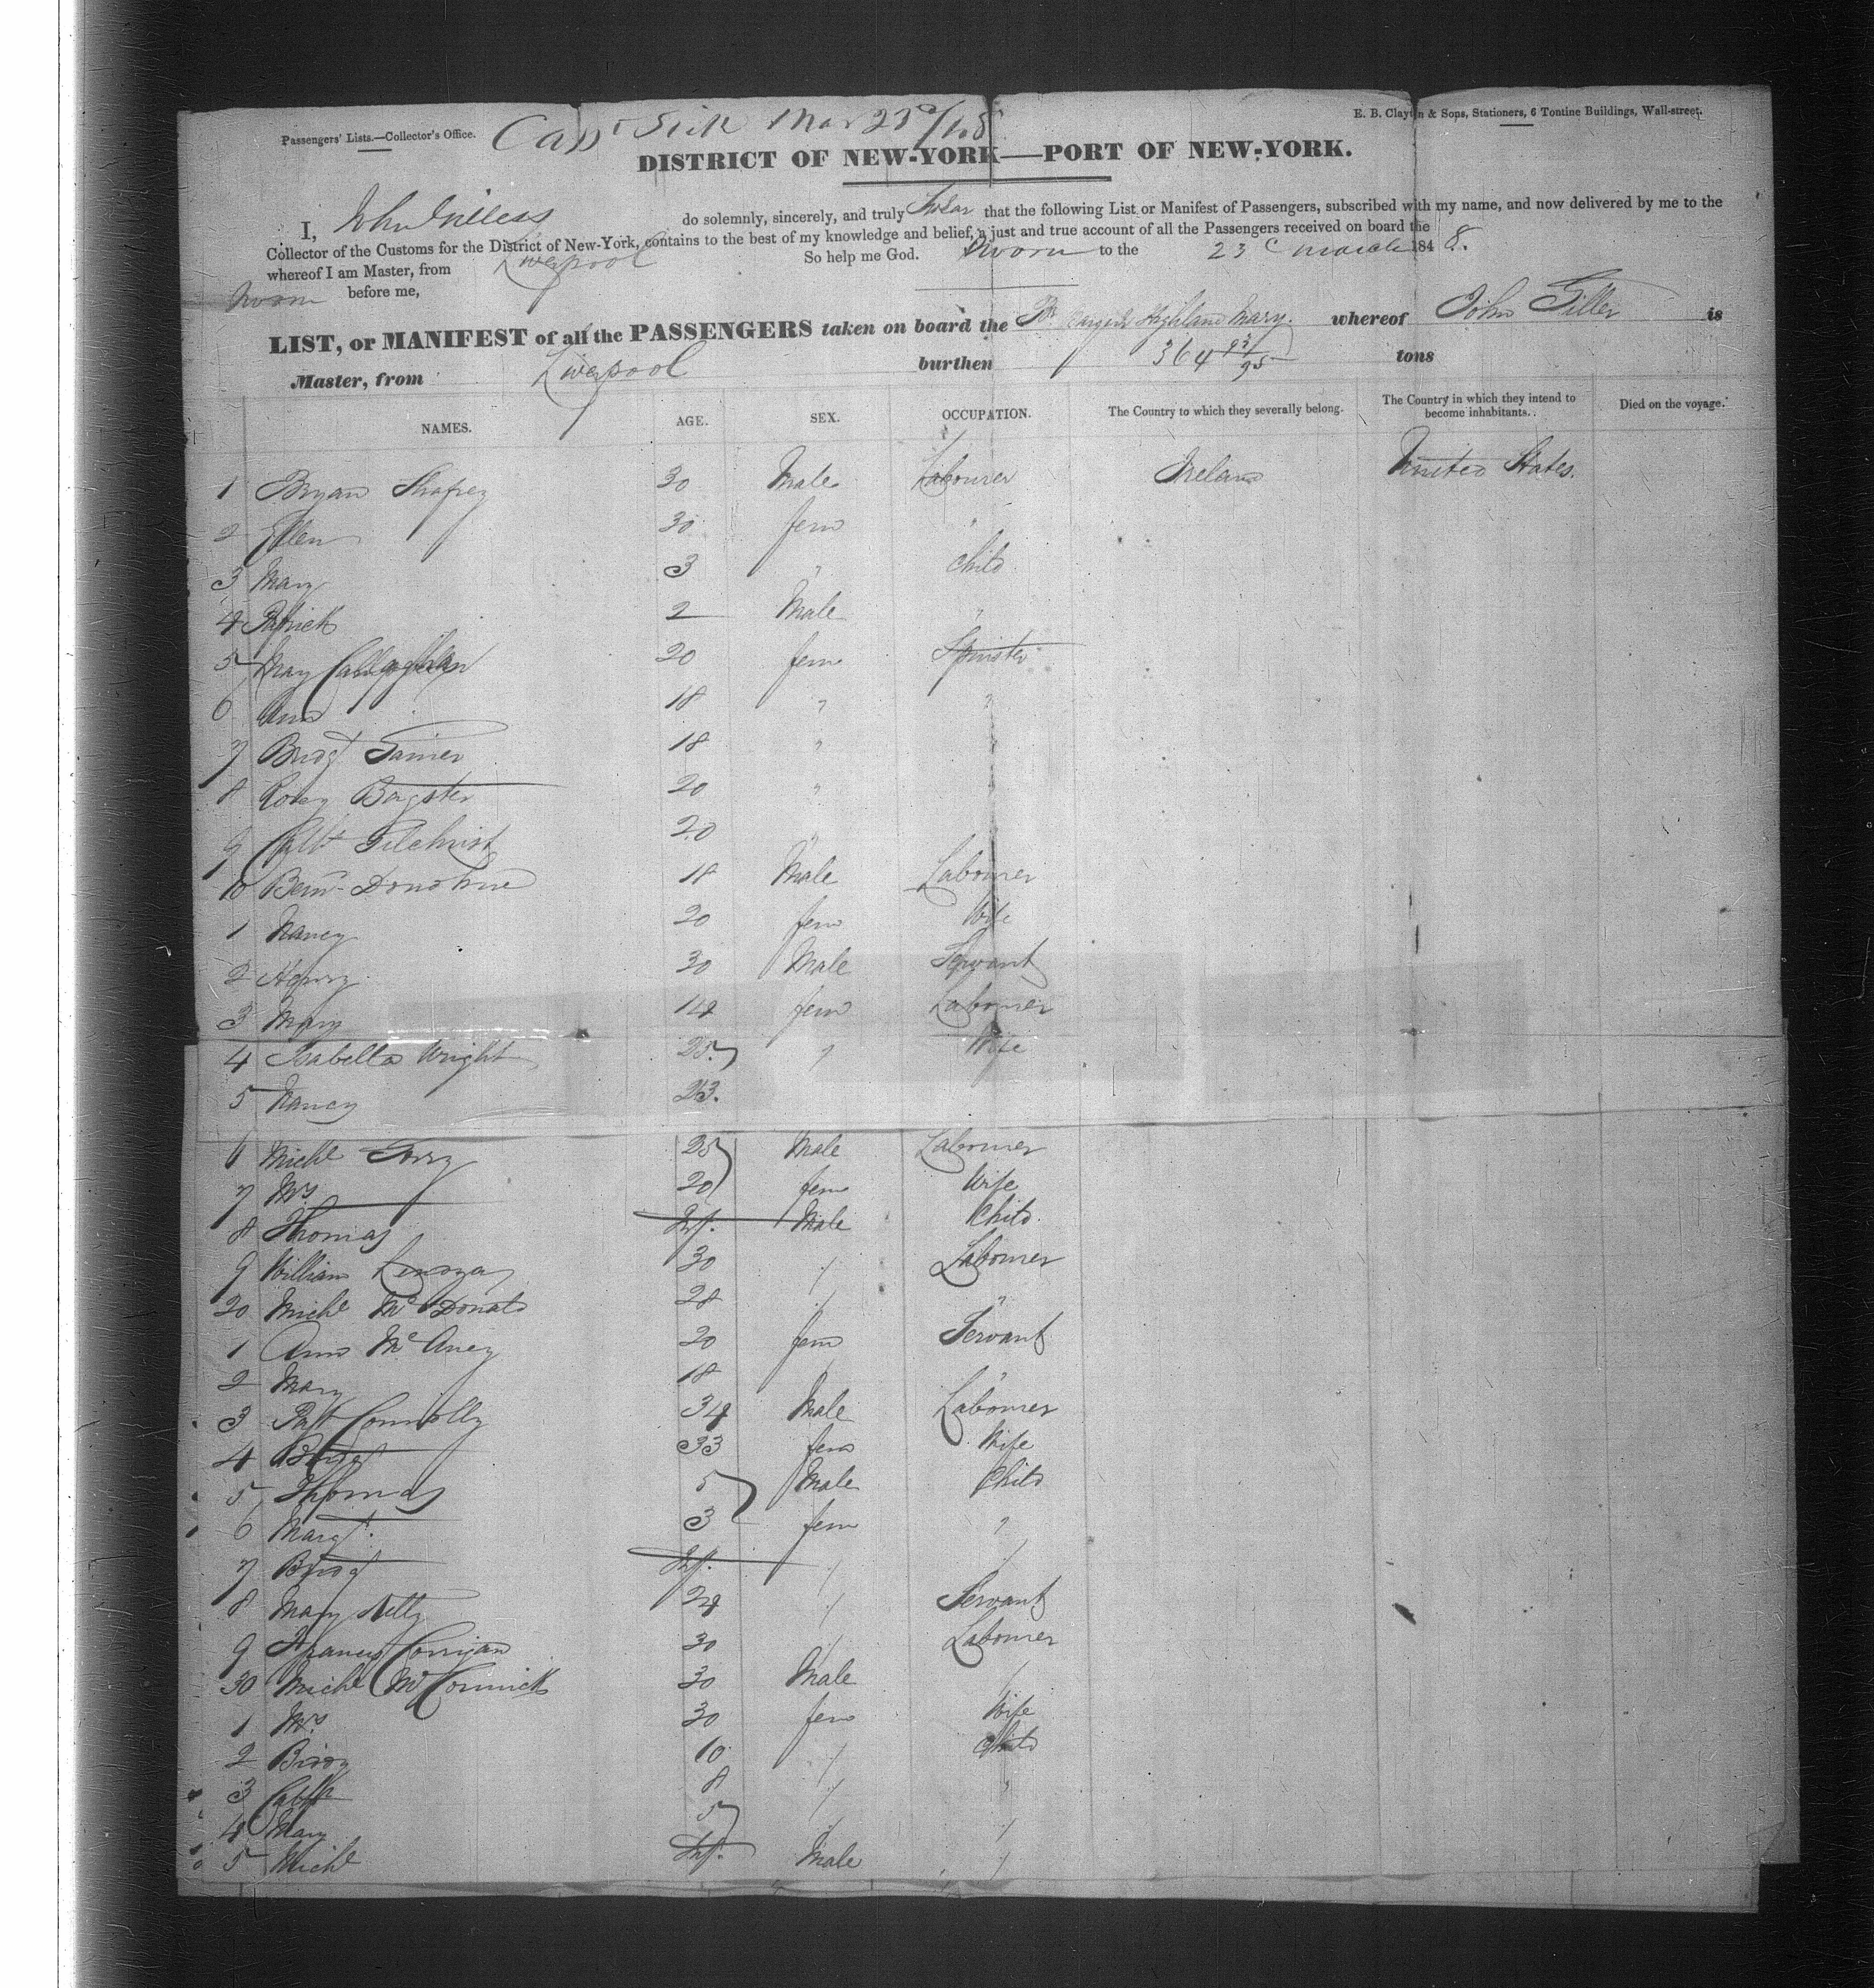 Passengers' Lists.—Collector's Office.
Capt Sick Mar 23d/48
E. B. Clayton & Sons, Stationers, 6 Tontine Buildings, Wall-street.
DISTRICT OF NEW-YORK—PORT OF NEW-YORK.
I, John do solemnly, sincerely, and truly Swear that the following List or Manifest of Passengers, subscribed with my name, and now delivered by me to the
Collector of the Customs for the District of New-York, contains to the best of my knowledge and belief, a just and true account of all the Passengers received on board the
whereof I am Master, from Liverpool So help me God. Sworn to the 23d March 1848.
Sworn before me,
LIST, or MANIFEST of all the PASSENGERS taken on board the Br Highland Mary. whereof John Tiller is
Master, from Liverpool burthen 364 93/95 tons
NAMES. AGE. SEX. OCCUPATION. The Country to which they severally belong. The Country in which they intend to become inhabitants. Died on the voyage.
1 Bryan 30 Male Labourer Ireland United States.
2 Ellen 30 fem "
3 Mary 3 " Child
4 Patrick 2 Male "
5 Mary Callaghan 20 fem Spinster
6 Ann 18 " "
7 Bridgt 18 "
8 Bagster 20 "
9 Cathn Gilchrist 20 "
10 Donohue 18 Male Labourer
1 Nancy 20 fem Wife
2 Henry 30 Male Servant
3 Mary 14 fem Labourer
4 Isabella Wright 25 " Wife
5 Nancy 23.
6 Michl 25 Male Labourer
7 Mrs 20 fem Wife
8 Thomas Inf. Male Child
9 William 30 " Labourer
20 Michl McDonald 28 " "
1 Ann McAney 20 fem Servant
2 Mary 18 " "
3 Patt Connolly 34 Male Labourer
4 Bridgt 33 fem Wife
5 Thomas 5 Male Child
6 Margt. 3 fem "
7 Bridgt Inf. " "
8 Mary 24 " Servant
9 Francis Corrigan 30 " Labourer
30 Michl McCormick 30 Male "
1 Mrs. 30 fem Wife
2 Biddy 10 " Child
3 Cathn 8 " "
4 Mary 5 " "
5 Michl Inf. Male "